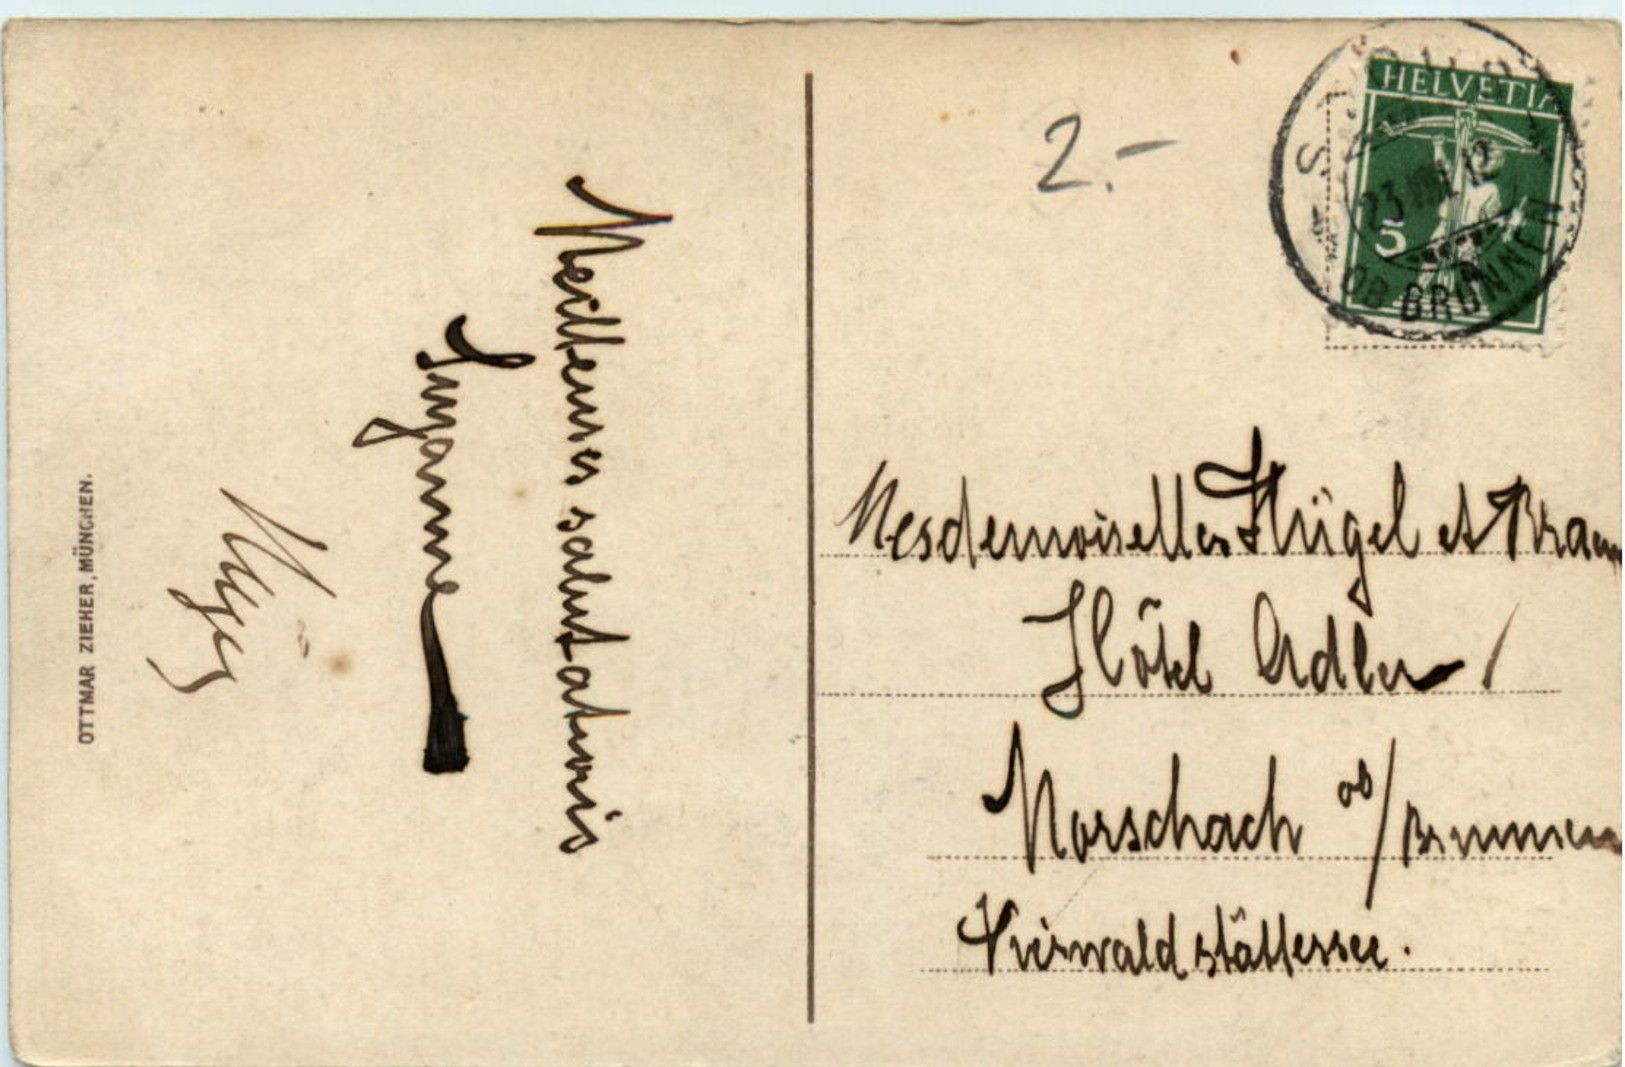 OTTMAR ZIEHER, MÜNCHEN.
Meilleures salutations
Suzanne
2.-
HELVETIA
5
23. 12
OB BRUNNEN
Mesdemoiselles Hügel et
Hôtel Adler
Morschach ob/Brunnen
Vierwaldstättersee.